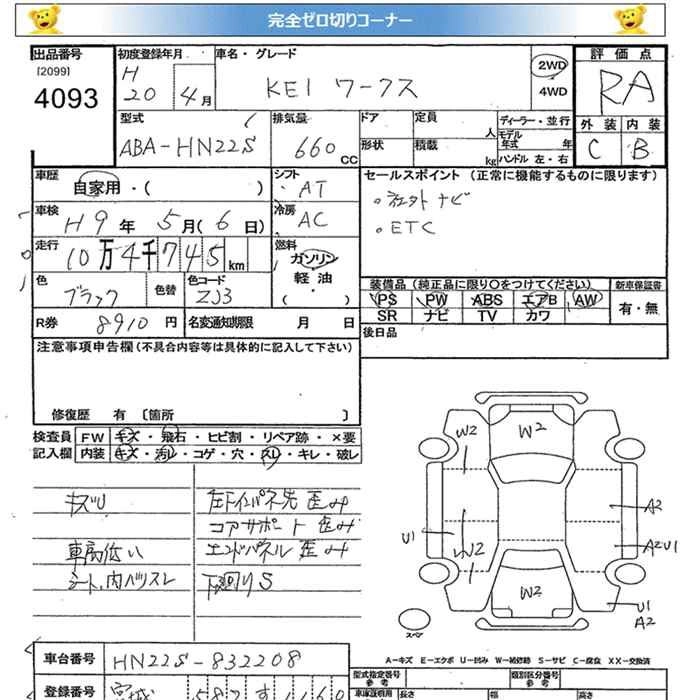 完全ゼロ切りコーナー
出品番号 初度登録年月 車名・グレード 評価点
[2099] H
4093 20 4月 KEI ワークス 2WD 4WD RA
型式 排気量 ドア 定員 人 ディーラー・並行 外装 内装
ABA-HN22S 660 CC 形状 積載 kg モデル年式 年 ハンドル 左・右 C B
車歴 自家用・( ) シフト AT セールスポイント (正常に機能するものに限ります)
車検 H9年 5月(6日) 冷房 AC 。社外ナビ
。ETC
走行 10万4千745km 燃料 ガソリン 軽油 ・( )
色 ブラック 色替 色コード ZJ3
装備品 (純正品に限り○をつけてください) 新車保証書
PS PW ABS エアB AW 有・無
SR ナビ TV カワ
R券 8910円 名変通知期限 月 日 後日品
注意事項申告欄(不具合内容等は具体的に記入して下さい)
修復歴 有 〔箇所 〕
検査員 FW キズ・飛石・ヒビ割・リペア跡・×要
記入欄 内装 キズ・汚レ・コゲ・穴・スレ・キレ・破レ
キズU 左下インパネ先 歪み
コアサポート 歪み
車高低い エンドパネル 歪み
シート、内ハリスレ 下廻りS
W2 W2
A2
U1 W2 A2U1
W2
U1
A2
スペア
A-キズ E-エクボ U-凹み W-補修跡 S-サビ C-腐食 XX-交換済
車台番号 HN22S-832208
型式指定番号 参考 類別区分番号 参考
登録番号 宮城 587 す 1160
車庫証明用 参考 長さ 幅 高さ